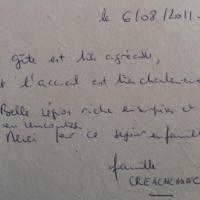 le 6/08/2011.
gîte est très agréable,
t l'accueil est très chaleureu
Belle région riche en surprises et
en rencontres.
Merci pour ce séjour en famille
famille